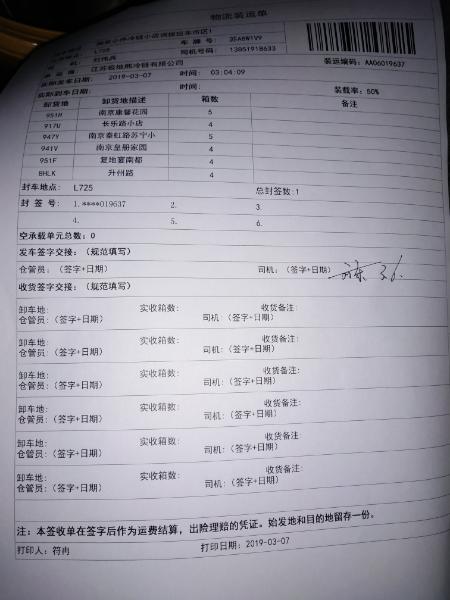 物流装运单
L725 车牌号: 35A6W1V9
司机号码: 13851918633
装运编码: AA06019637
实际发车日期: 2019-03-07 时间: 03:04:09
实际到车日期: 时间: 装载率: 50%
卸货地 卸货地描述 箱数 备注
951H 南京康馨花园 5
917U 长乐路小店 4
947Y 南京秦虹路苏宁小 5
941V 南京皇册家园 4
951F 复地宴南都 4
8HLK 升州路 4
封车地点: L725 总封签数:1
封 签 号: 1.****019637 2. 3.
4. 5. 6.
空承载单元总数: 0
发车签字交接: (规范填写)
仓管员: (签字+日期) 司机: (签字+日期)
收货签字交接: (规范填写)
卸车地: 实收箱数: 收货备注:
仓管员: (签字+日期) 司机: (签字+日期)
卸车地: 实收箱数: 收货备注:
仓管员: (签字+日期) 司机: (签字+日期)
卸车地: 实收箱数: 收货备注:
仓管员: (签字+日期) 司机: (签字+日期)
卸车地: 实收箱数: 收货备注:
仓管员: (签字+日期) 司机: (签字+日期)
卸车地: 实收箱数: 收货备注:
仓管员: (签字+日期) 司机: (签字+日期)
卸车地: 实收箱数: 收货备注:
仓管员: (签字+日期) 司机: (签字+日期)
注: 本签收单在签字后作为运费结算, 出险理赔的凭证。始发地和目的地留存一份。
打印人: 符冉 打印日期: 2019-03-07